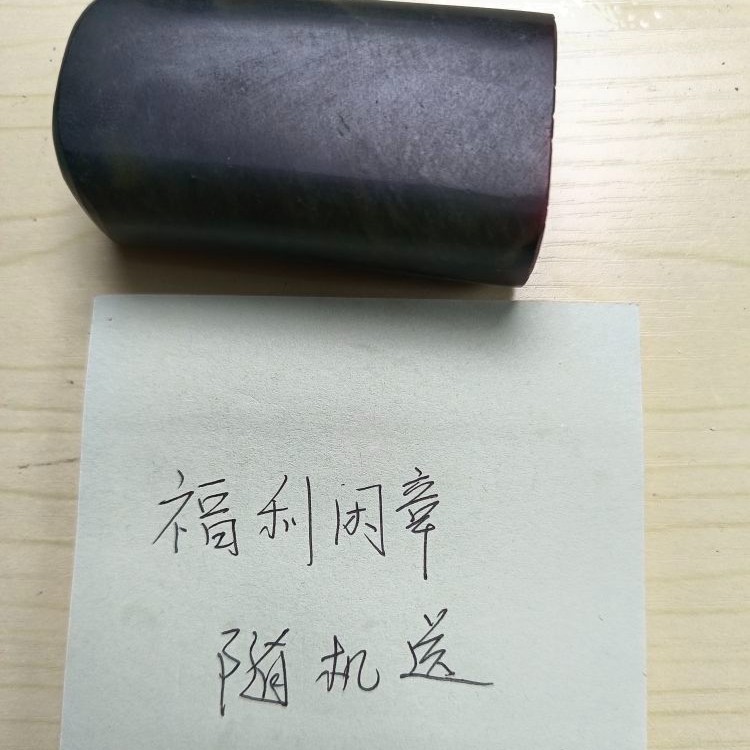 福利闲章
随机送